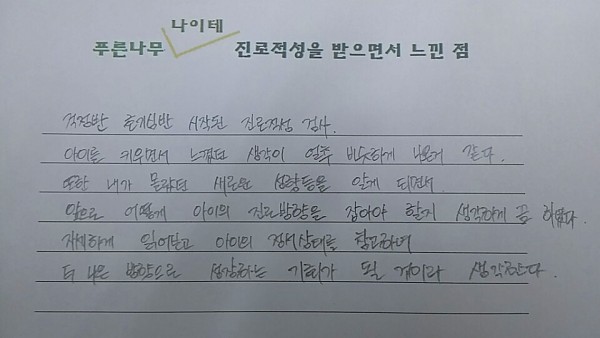 나이테
푸른나무 진로적성을 받으면서 느낀 점
걱정반 호기심반 시작된 진로적성 검사.
아이를 키우면서 느꼈던 생각이 얼추 비슷하게 나온거 같다.
또한 내가 몰랐던 새로운 성향등을 알게 되면서
앞으로 어떻게 아이의 진로방향을 잡아야 할지 생각하게 끔 하였다.
자세하게 읽어보고 아이의 정서상태를 참고하며
더 나은 방향으로 성장하는 기회가 될 것이라 생각한다.